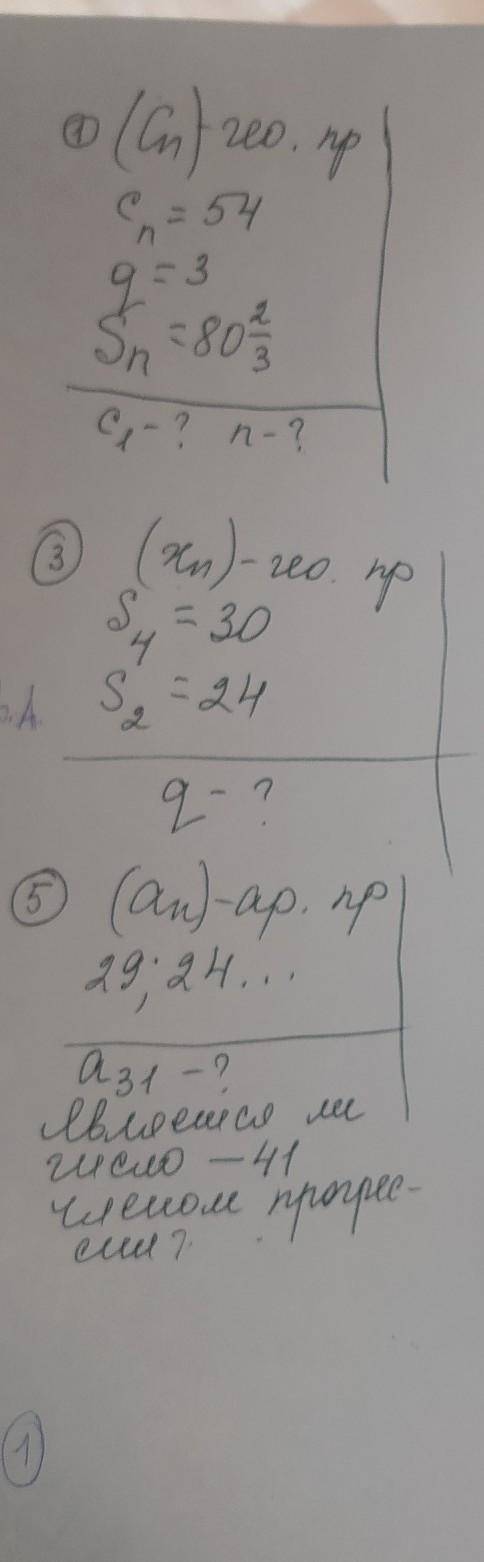 ① (Cn) - гео. пр
cn = 54
q = 3
Sn = 80 2/3
c1 - ? n - ?
③ (xn) - гео. пр
S4 = 30
S2 = 24
q - ?
⑤ (an) - ар. пр
29; 24...
a31 - ?
Является ли
число - 41
членом прогрес-
сии?
①